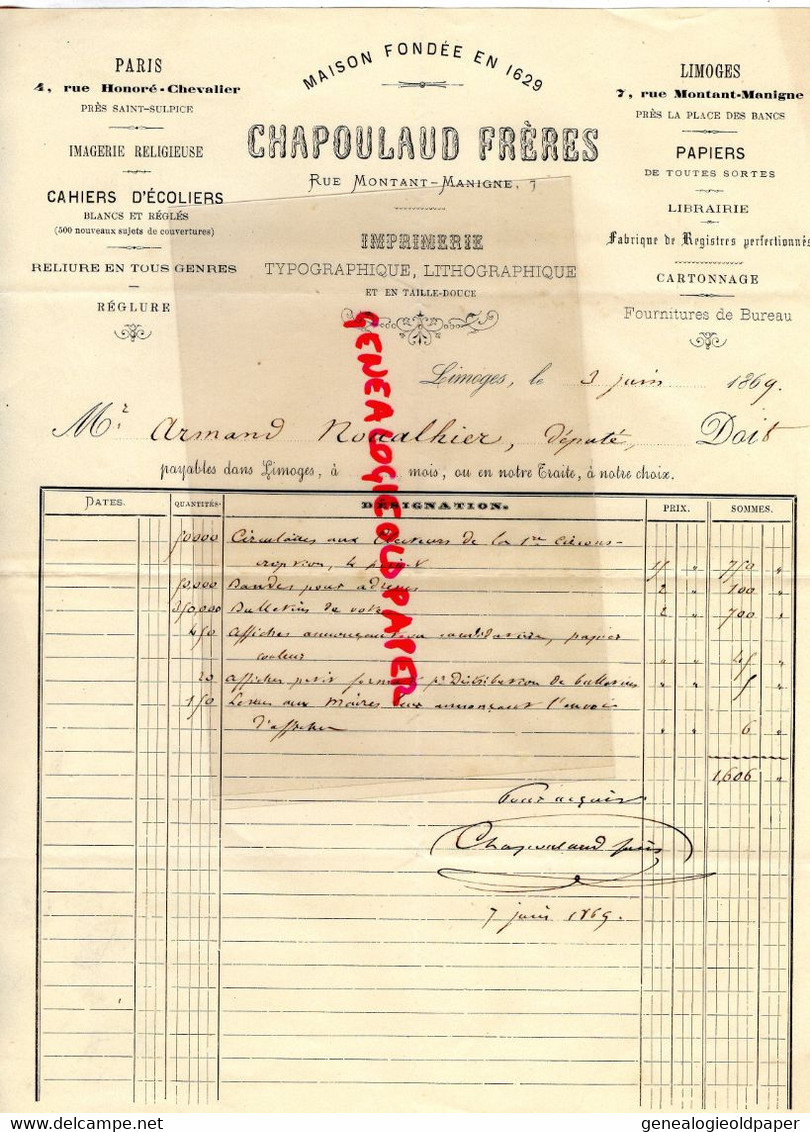 MAISON FONDÉE EN 1629
PARIS
4, rue Honoré-Chevalier
PRÈS SAINT-SULPICE
IMAGERIE RELIGIEUSE
CAHIERS D'ÉCOLIERS
BLANCS ET RÉGLÉS
(500 nouveaux sujets de couvertures)
RELIURE EN TOUS GENRES
RÉGLURE
CHAPOULAUD FRÈRES
RUE MONTANT-MANIGNE, 7
IMPRIMERIE
TYPOGRAPHIQUE, LITHOGRAPHIQUE
ET EN TAILLE-DOUCE
LIMOGES
7, rue Montant-Manigne
PRÈS LA PLACE DES BANCS
PAPIERS
DE TOUTES SORTES
LIBRAIRIE
Fabrique de Registres perfectionnés
CARTONNAGE
Fournitures de Bureau
Limoges, le 3 juin 1869.
Mr. Armand Noualhier, député, Doit
payables dans Limoges, à mois, ou en notre Traite, à notre choix.
DATES. QUANTITÉS. DÉSIGNATION. PRIX. SOMMES.
50000 Circulaires aux Electeurs de la 1re circons-
cription, 15 " 750 "
50,000 Bandes pour adresses 2 " 100 "
350,000 Bulletins de vote 2 " 700 "
450 Affiches annonçant candidature, papier
couleur " " 45 "
20 Affiches petit format pr Distribution de bulletins " " 5 "
150 Lettres aux Maires leur annonçant l'envoi
d'affiches " " 6 "
1,606 "
Pour acquit
Chapoulaud frères
7 juin 1869.
GENEALOGIEOLDPAPER
delcampe.net
genealogieoldpaper